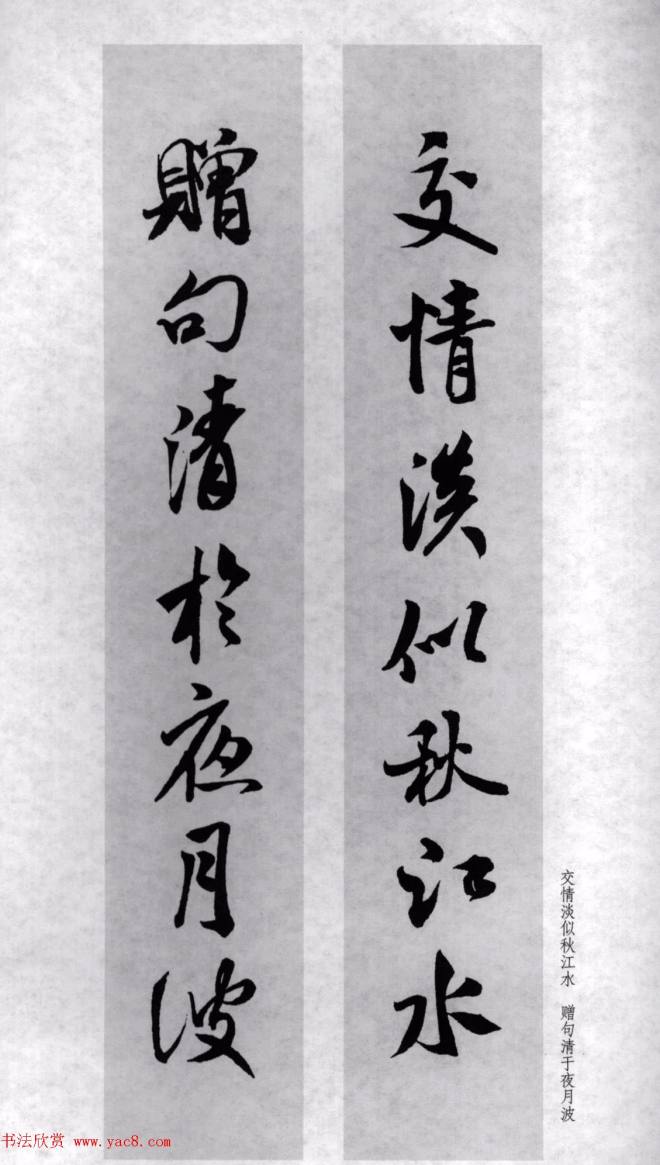 交情淡似秋江水
贈句清於夜月波
交情淡似秋江水 赠句清于夜月波
书法欣赏 www.yac8.com